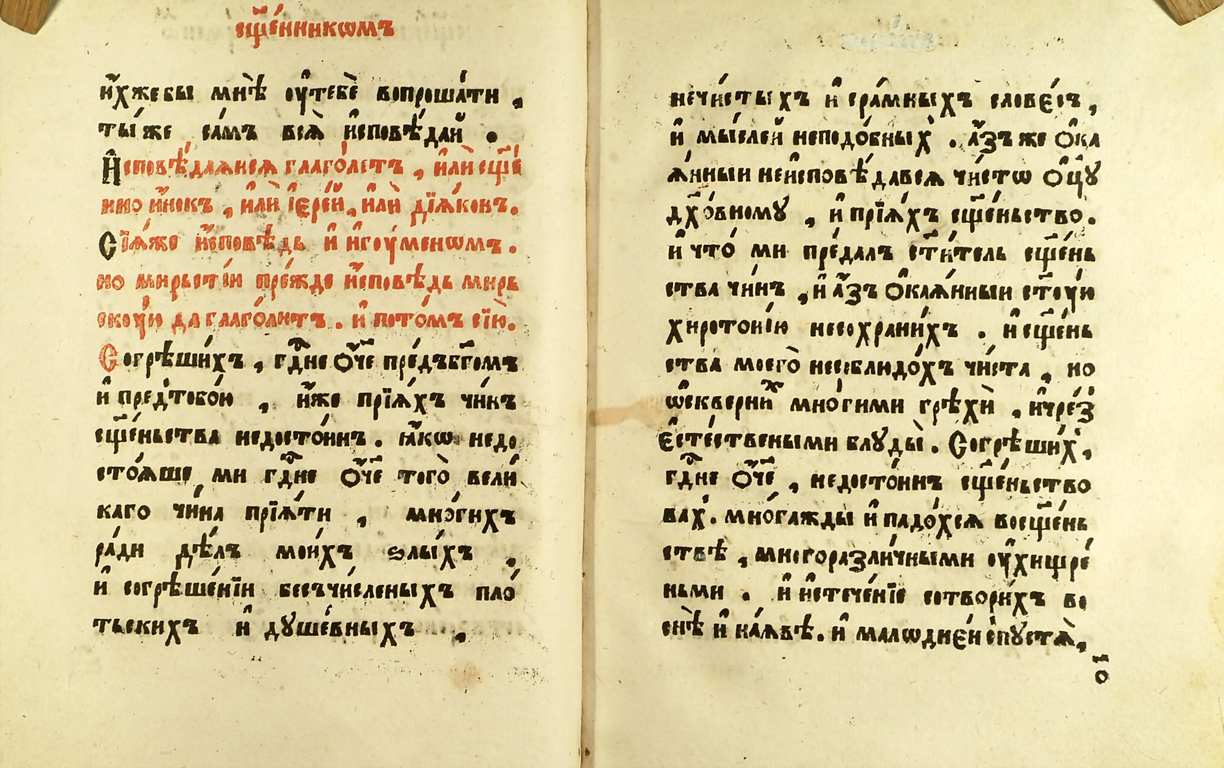 сщ҃е́нникѡмъ
и҆́хже бы мнѣ̀ ѹ҆тебѐ вопроша́ти ,
ты́ же са́мъ всѧ̀ и҆сповѣ́дай .
И҆сповѣ́даѧисѧ глаго́летъ , и҆лѝ сщ҃е́
нно и҆́нокъ , и҆лѝ і҆ере́й , и҆лѝ дїѧ́конъ .
Сїѧ́же и҆́сповѣдь и҆ и҆гѹ́меномъ .
но мирьсті́и пре́жде и҆́сповѣдь мирь
скѹ́ю да глаго́лютъ . и҆ пото́мъ сїю̀ .
Согрѣши́хъ , гд҃не ѻ҆́ч҃е пре́дъ бг҃омъ
и҆ пред̾тобо́ю , и҆́же прїѧ́хъ чи́нъ
сщ҃е́ньства недосто́инъ . ꙗ҆́кѡ недо
сто́ѧше ми гд҃не ѻ҆ч҃е того̀ вели́
каго чи́на прїѧ́ти , мно́гихъ
ра́ди дѣ́лъ мои́хъ ѕлы́хъ ,
и҆ согрѣше́нїи бесъчи́сленыхъ пло́
тьскихъ и҆ дꙋше́вныхъ .
нечи́стыхъ и҆ сра́мныхъ слове́съ ,
и҆ мы́слей неподо́бныхъ . а҆́зъ же ѻ҆ка
ѧ́нныи неи҆сповѣ́давсѧ чи́стѡ ѻ҆ц҃ꙋ̀
дх҃о́вномꙋ , и҆ прїѧ́хъ сщ҃е́ньство .
и҆ что́ ми пре́далъ ст҃и́тель сщ҃е́нь
ства чи́нъ , и҆ а҆́зъ ѻ҆каѧ́нныи ст҃ѹ́ю
хиротоні́ю несохрани́хъ . и҆ сщ҃е́нь
ства моего̀ несоблюдо́хъ чи́ста , но
ѡ҆скверни́х мно́гими грѣхѝ , и҆ чре́з̾
є҆сте́ствеными блꙋды̀ . Согрѣши́х̾ ,
гд҃не ѻ҆́ч҃е , недосто́инъ сщ҃е́ньство
вах̾ . мно́гажды и҆ падо́хсѧ восщ҃е́нь
ствѣ , многоразли́чными ѹ҆хищре́
ньми . и҆ и҆стече́нїе сотвори́хъ во
снѣ̀ и҆ на́ѧвѣ . и҆ малѡдне́и ѻ҆пꙋстѧ̀ ,